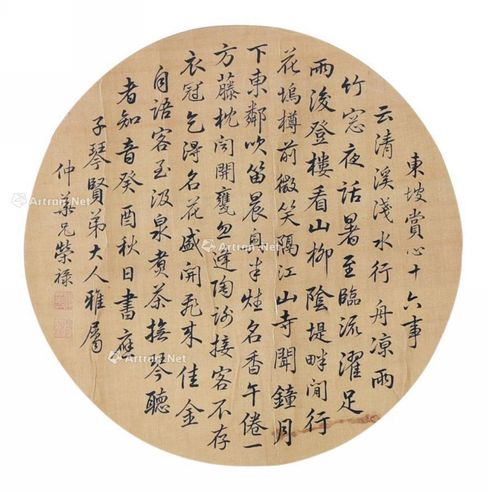 東坡賞心十六事
云清溪淺水行舟凉雨
竹窓夜話暑至臨流濯足
雨後登樓看山柳陰堤畔閒行
花塢樽前微笑隔江山寺聞鐘月
下東鄰吹笛晨興半炷名香午倦一
方藤枕閒開甕忽逢陶謝接客不存
衣冠乞得名花盛開飛来佳金
自語客至汲泉煮茶撫琴聽
者知音癸酉秋日書應
子琴賢弟大人雅屬
仲華兄榮禄
Artron.Net
Artron.Net
Artron.Net
Artron.Net